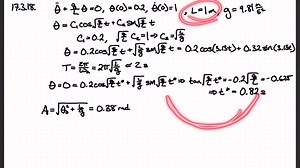 17.3.18. θ̈ + g/L θ = 0, θ(0) = 0.2, θ̇(0) = 1, L = 1m, g = 9.81 m/s²
θ = C₁cos√(g/L) t + C₂sin√(g/L) t
C₁ = 0.2, √(g/L) C₂ = 1 → C₂ = √(L/g)
θ = 0.2cos√(g/L) t + √(L/g) sin√(g/L) t = 0.2cos(3.13t) + 0.32sin(3.13t)
T = 2π/√(g/L) = 2π√(L/g) = 2s
θ = 0 = 0.2cos√(g/L) t* + √(L/g) sin√(g/L) t* ⇒ tan√(g/L) t* = -0.2√(g/L) = -0.625
⇒ t* = 0.82s
A = √(θ₀² + L/g) = 0.38 rad